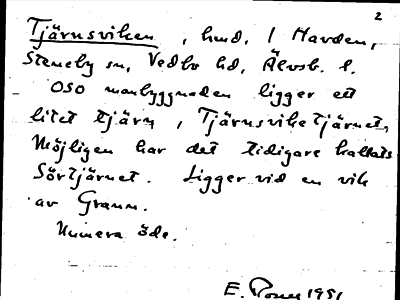 2
Tjärnsviken, hmd. / Havden,
Steneby sn, Vedbo hd, Älvsb. l.
OSO manbyggnaden ligger ett
litet tjärn, Tjärnsviketjärnet,
Möjligen har det tidigare kallats
Sörtjärnet. Ligger vid en vik
av Grann.
Numera öde.
E. 1951